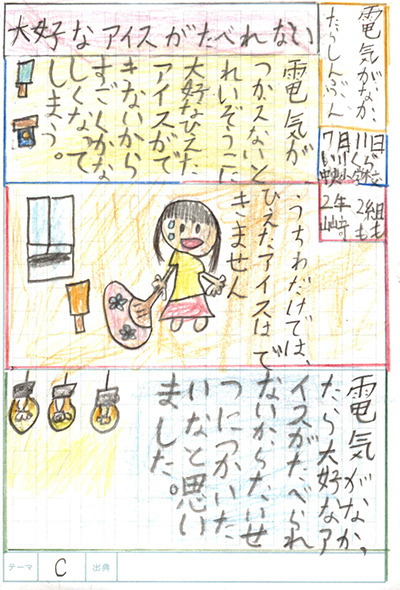 大好なアイスがたべれない
電気がなかっ
たらしんぶん
7月11日
2年2組
電気が
つかえないと
れいぞうこに
大好なひえた
アイスがで
きないから
すごくかな
しくなって
しまう。
うちわだけでは、
ひえたアイスはで
きません
電気がなかっ
たら大好なア
イスがたべられ
ないからたいせ
つにつかいた
いなと思い
ました。
テーマ C 出典